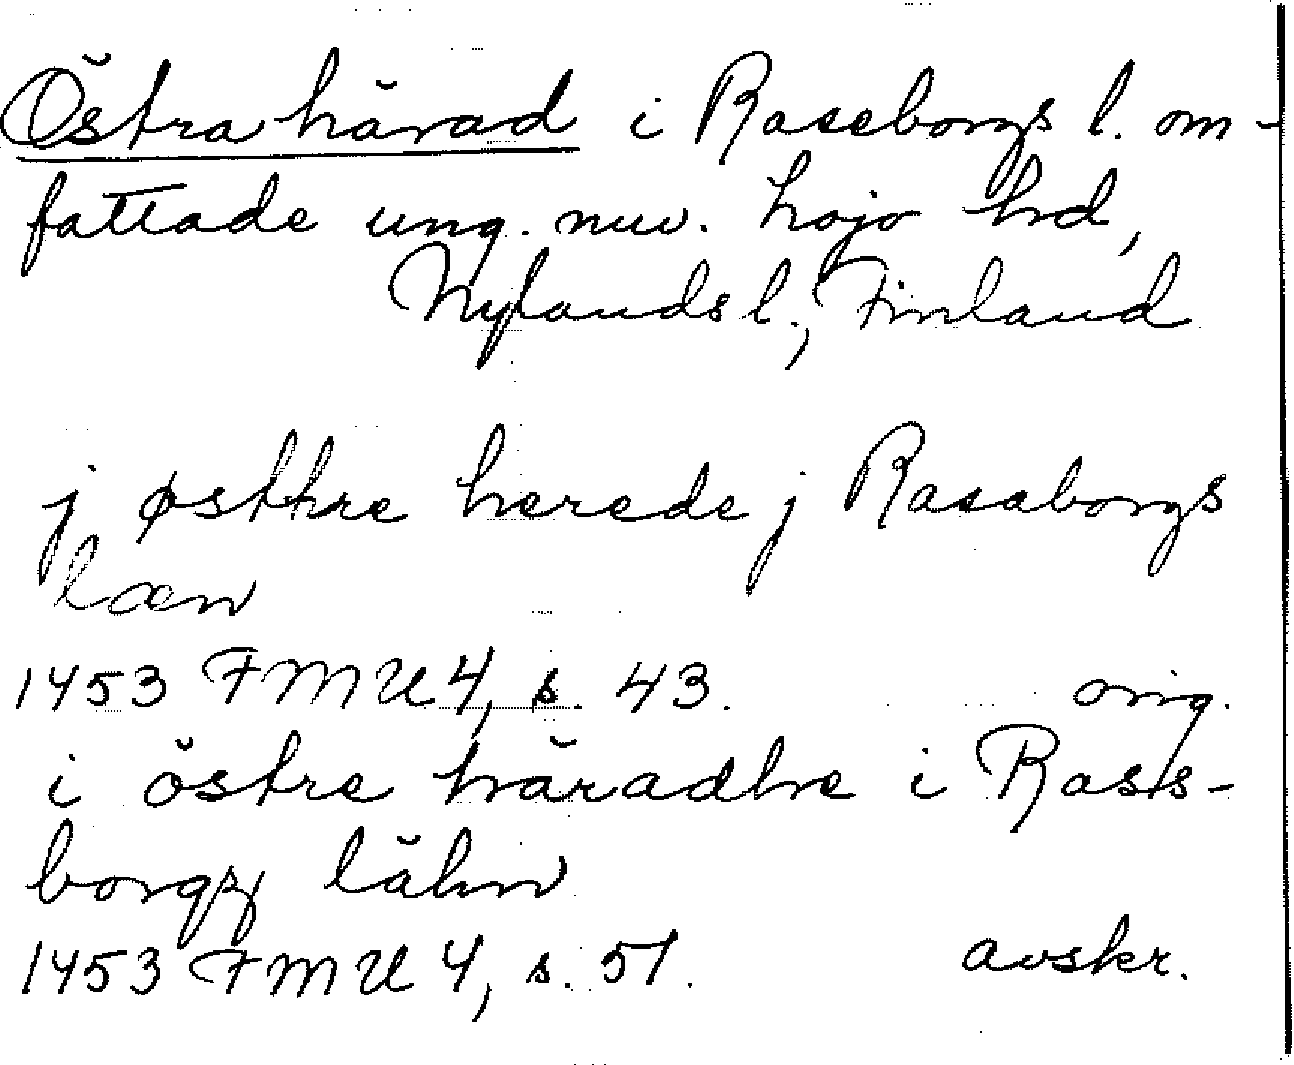 Östra härad i Raseborgs l. om-
fattade ung. nuv. Lojo hd,
Nylands l., Finland
j østhre herede j Rasaborgs
læn
1453 FMU 4, s. 43. orig.
i östre häradhe i Rass-
borgz lähn
1453 FMU 4, s. 51. avskr.